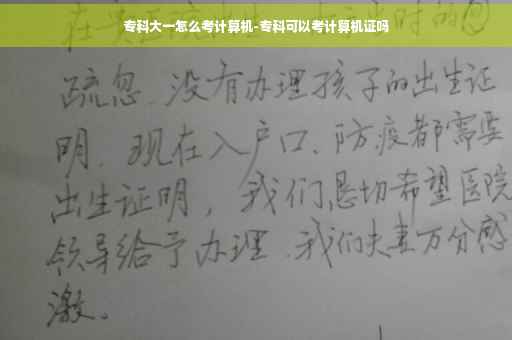 专科大一怎么考计算机-专科可以考计算机证吗
疏忽、没有办理孩子的出生证
明、现在入户口、防疫都需要
出生证明，我们恳切希望医院
领导给予办理、我们夫妻万分感
激。